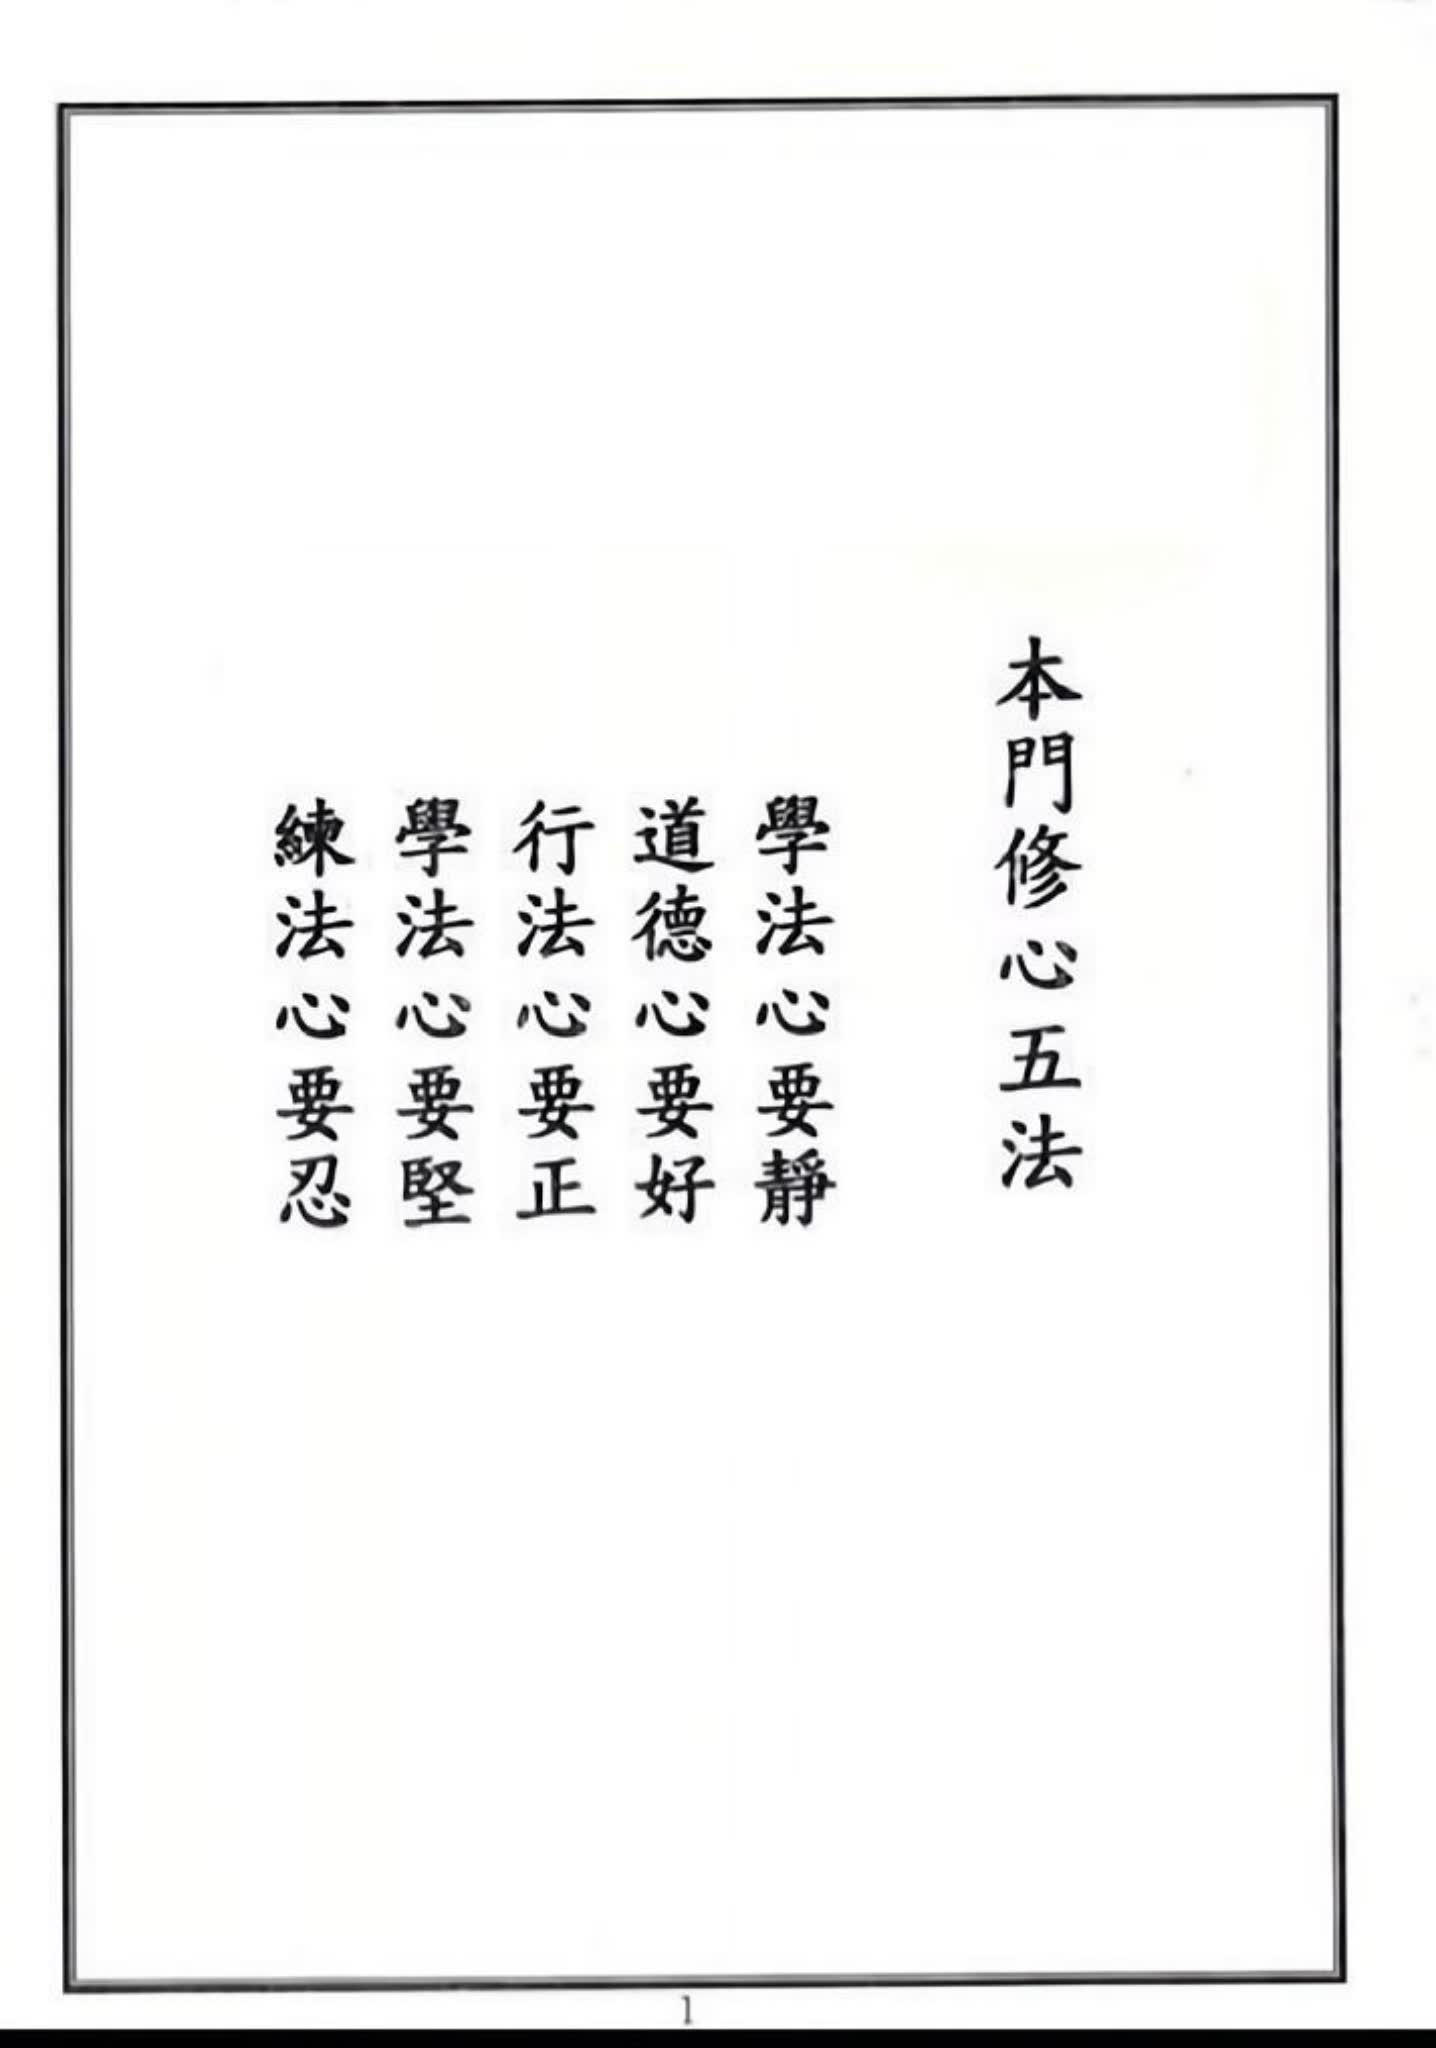 本門修心五法
學法心要靜
道德心要好
行法心要正
學法心要堅
練法心要忍
1